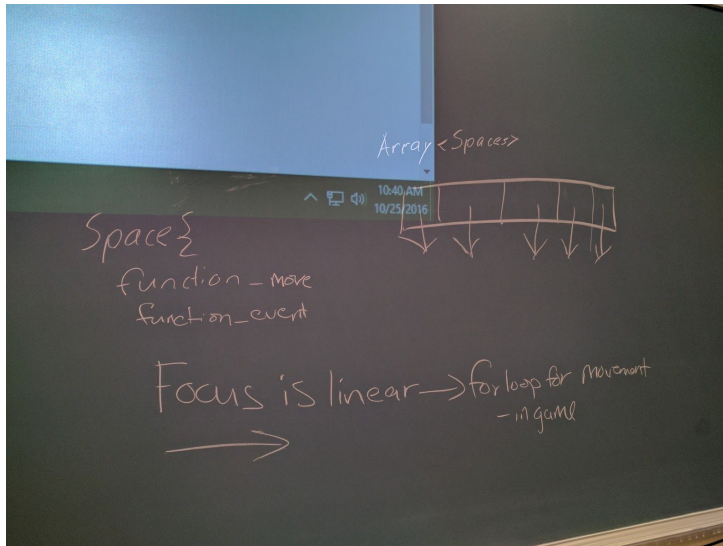 Array <Spaces>
10:40 AM
10/25/2016
Space{
function_move
function_event
Focus is linear → for loop for movement
- in game